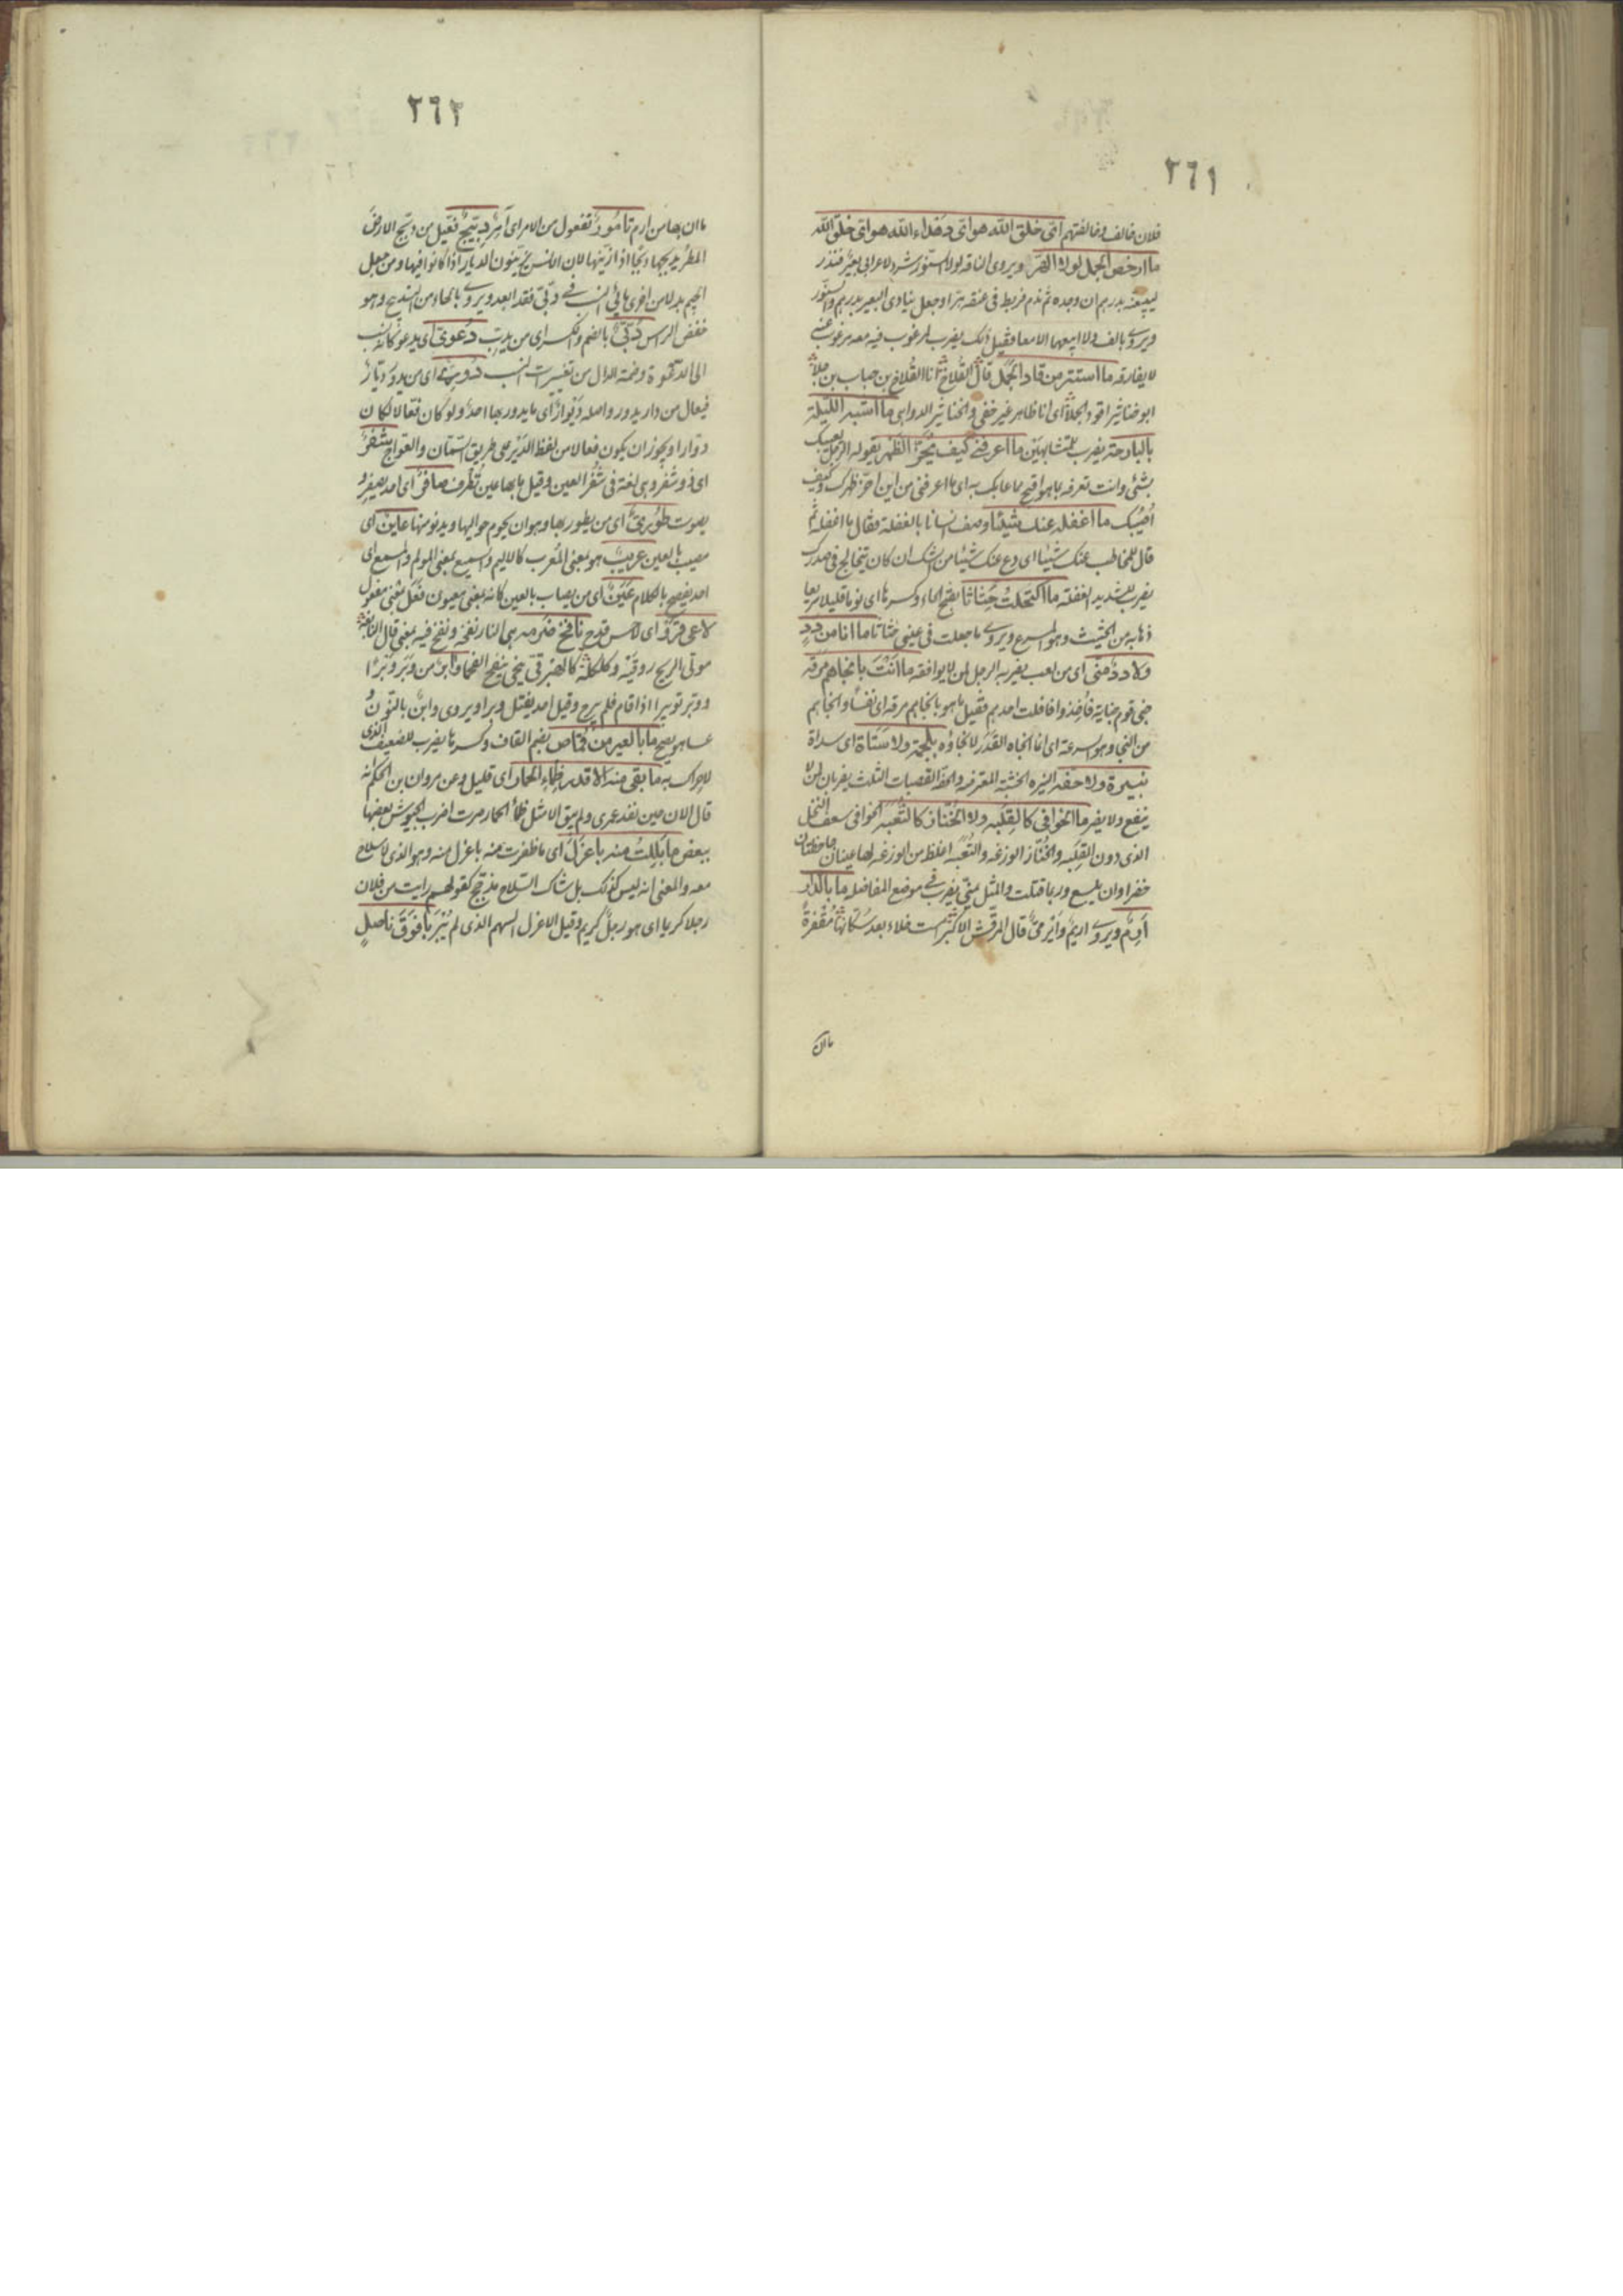 ٢٦١
فلان فالف وفالفتهم اى خلق الله هو اى دهداء الله هو اى خلق الله
ما ارخص الجمل لولا الهر ويروى الناقه لولا السنور شرد لاعرابى بعير فنذر
ليبيعنه بدرهم ان وجده ثم ندم فربط فى عنقه هرا وجعل ينادى البعير بدرهم والسنور
ويروى بالف ولا ابيعهما الا معا وقيل ذلك يضرب لمرغوب فيه معه مرغوب عنه
لا يفارقه ما استتر من قاد الجمل قال القلاخ انا القلاخ بن جناب بن جلا
ابو خناثير اقود الجملا اى انا ظاهر غير خفى والخناثير الدواهى ما اشبه الليلة
بالبارحة يضرب للمتشابهين ما اعرفنى كيف يجز الظهر يقوله الرجل يعيبك
بشئ وانت تعرفه باهو اقبح مما عابك به اى ما اعرفنى من اين اجز ظهرك وكيف
اعيبك ما اغفله عنك شيئا وصف انسانا بالغفلة فقال ما اغفله ثم
قال للمخاطب عنك شيئا اى دع عنك شيئا من الشك ان كان يتخالج فى صدرك
يضرب للشديد الغفلة ما اكتحلت حثاثا بفتح الحاء وكسرها اى نوما قليلا سريعا
ذهابه من الحثيث وهو المسرع ويروى ما جعلت فى عينى حثاثا ما انا من دد
ولا دد منى اى من لعب يضربه الرجل لمن لا يوافقه ما انت بانجاهم مرقة
جنى قوم جناية فاخذوا فافلت احدهم فقيل ما هو بانجاهم مرقة اى نفسا وانجاهم
من النجا وهو السرعة اى انما انجاه القدر لا نجاؤه بلحمة ولا ستاة اى سداة
بنيرة ولا حفه النيره الخشبة المعترضه والحفه القصبات الثلث يضربان لمن لا
ينفع ولا يضر ما الخوافى كالقلبه ولا الخناز كالثعبه الخوافى سعف النخل
الذى دون القلبه والخناز الوزغه والثعبه اغلظ من الوزغه لها عينان جاحظتان
خضراوان يلسع وربما قتلت والمثل يمنى يضرب فى موضع المفاضله ما بالدار
ارم ويروى اريم وايرمى قال المرقش الاكبر امست خلاء بعد سكانها مقفرة
ما ان
٢٦٢
ما ان بها من ارم تامور تفعول من الامر اى آمر دبيج فعيل من دبج الارض
المطر يدبجها دبجا اذا زينها لان الانس يزينون الديار اذا كانوا فيها ومن جعل
الجيم بدلا من اخرى يائى النسب فى دبى فقد ابعد ويروى بالحاء من التدبيح وهو
خفض الراس دبى بالضم والكسر اى من يدب دعوى اى يدعو كانه نسب
الى الدعوة وضمة الدال من تغييرات النسب دورى اى من يدور ديار
فيعال من دار يدور واصله ديوار اى ما يدور بها احد ولو كان فعالا لكان
دوارا ويجوز ان يكون فعالا من لفظ الدير على طريق السمان والعواج شفر
اى ذو شفر وهى لغة فى شفر العين وقيل ما بها عين تطرف صافر اى احد يصفر و
يصوت طورى اى من يطور بها وهو ان يحوم حواليها ويدنو منها عاين اى
مصيب بالعين عريب هو بمعنى المعرب كالاليم والسميع بمعنى المولم والمسمع اى
احد يفصح بالكلام عين اى من يصاب بالعين كانه بمعنى معيون فعل بمعنى مفعول
لاعى قرو اى لاحس قدح نافخ ضرمه هى النار نفخه ونفخ فيه بمعنى قال النابغة
مولى الريح روقيه وكلكله كالهبرقى تنحى ينفخ الفحما وابر من وبر وبرا
ووبر توبيرا اذا اقام فلم يبرح وقيل احد يفتل وبرا ويروى وابن بالنون
عساهو يصح ما بالعير من قماص بضم القاف وكسرها يضرب للضعيف الذى
لا حراك به ما بقى منه الا قدر ظمء الحمار اى قليل وعن مروان بن الحكم انه
قال الان حين نفد عمرى ولم يبق الا مثل ظمأ الحمار صرت اضرب الجيوش بعضها
ببعض ما بللت منه باعزل اى ما ظفرت منه باعزل منه وهو الذى لا سلاح
معه والمعنى انه ليس كذلك بل شاك السلاح مدجج كقولهم رايت من فلان
رجلا كريما اى هو رجل كريم وقيل الاعزل السهم الذى لم يبر بافوق ناصل